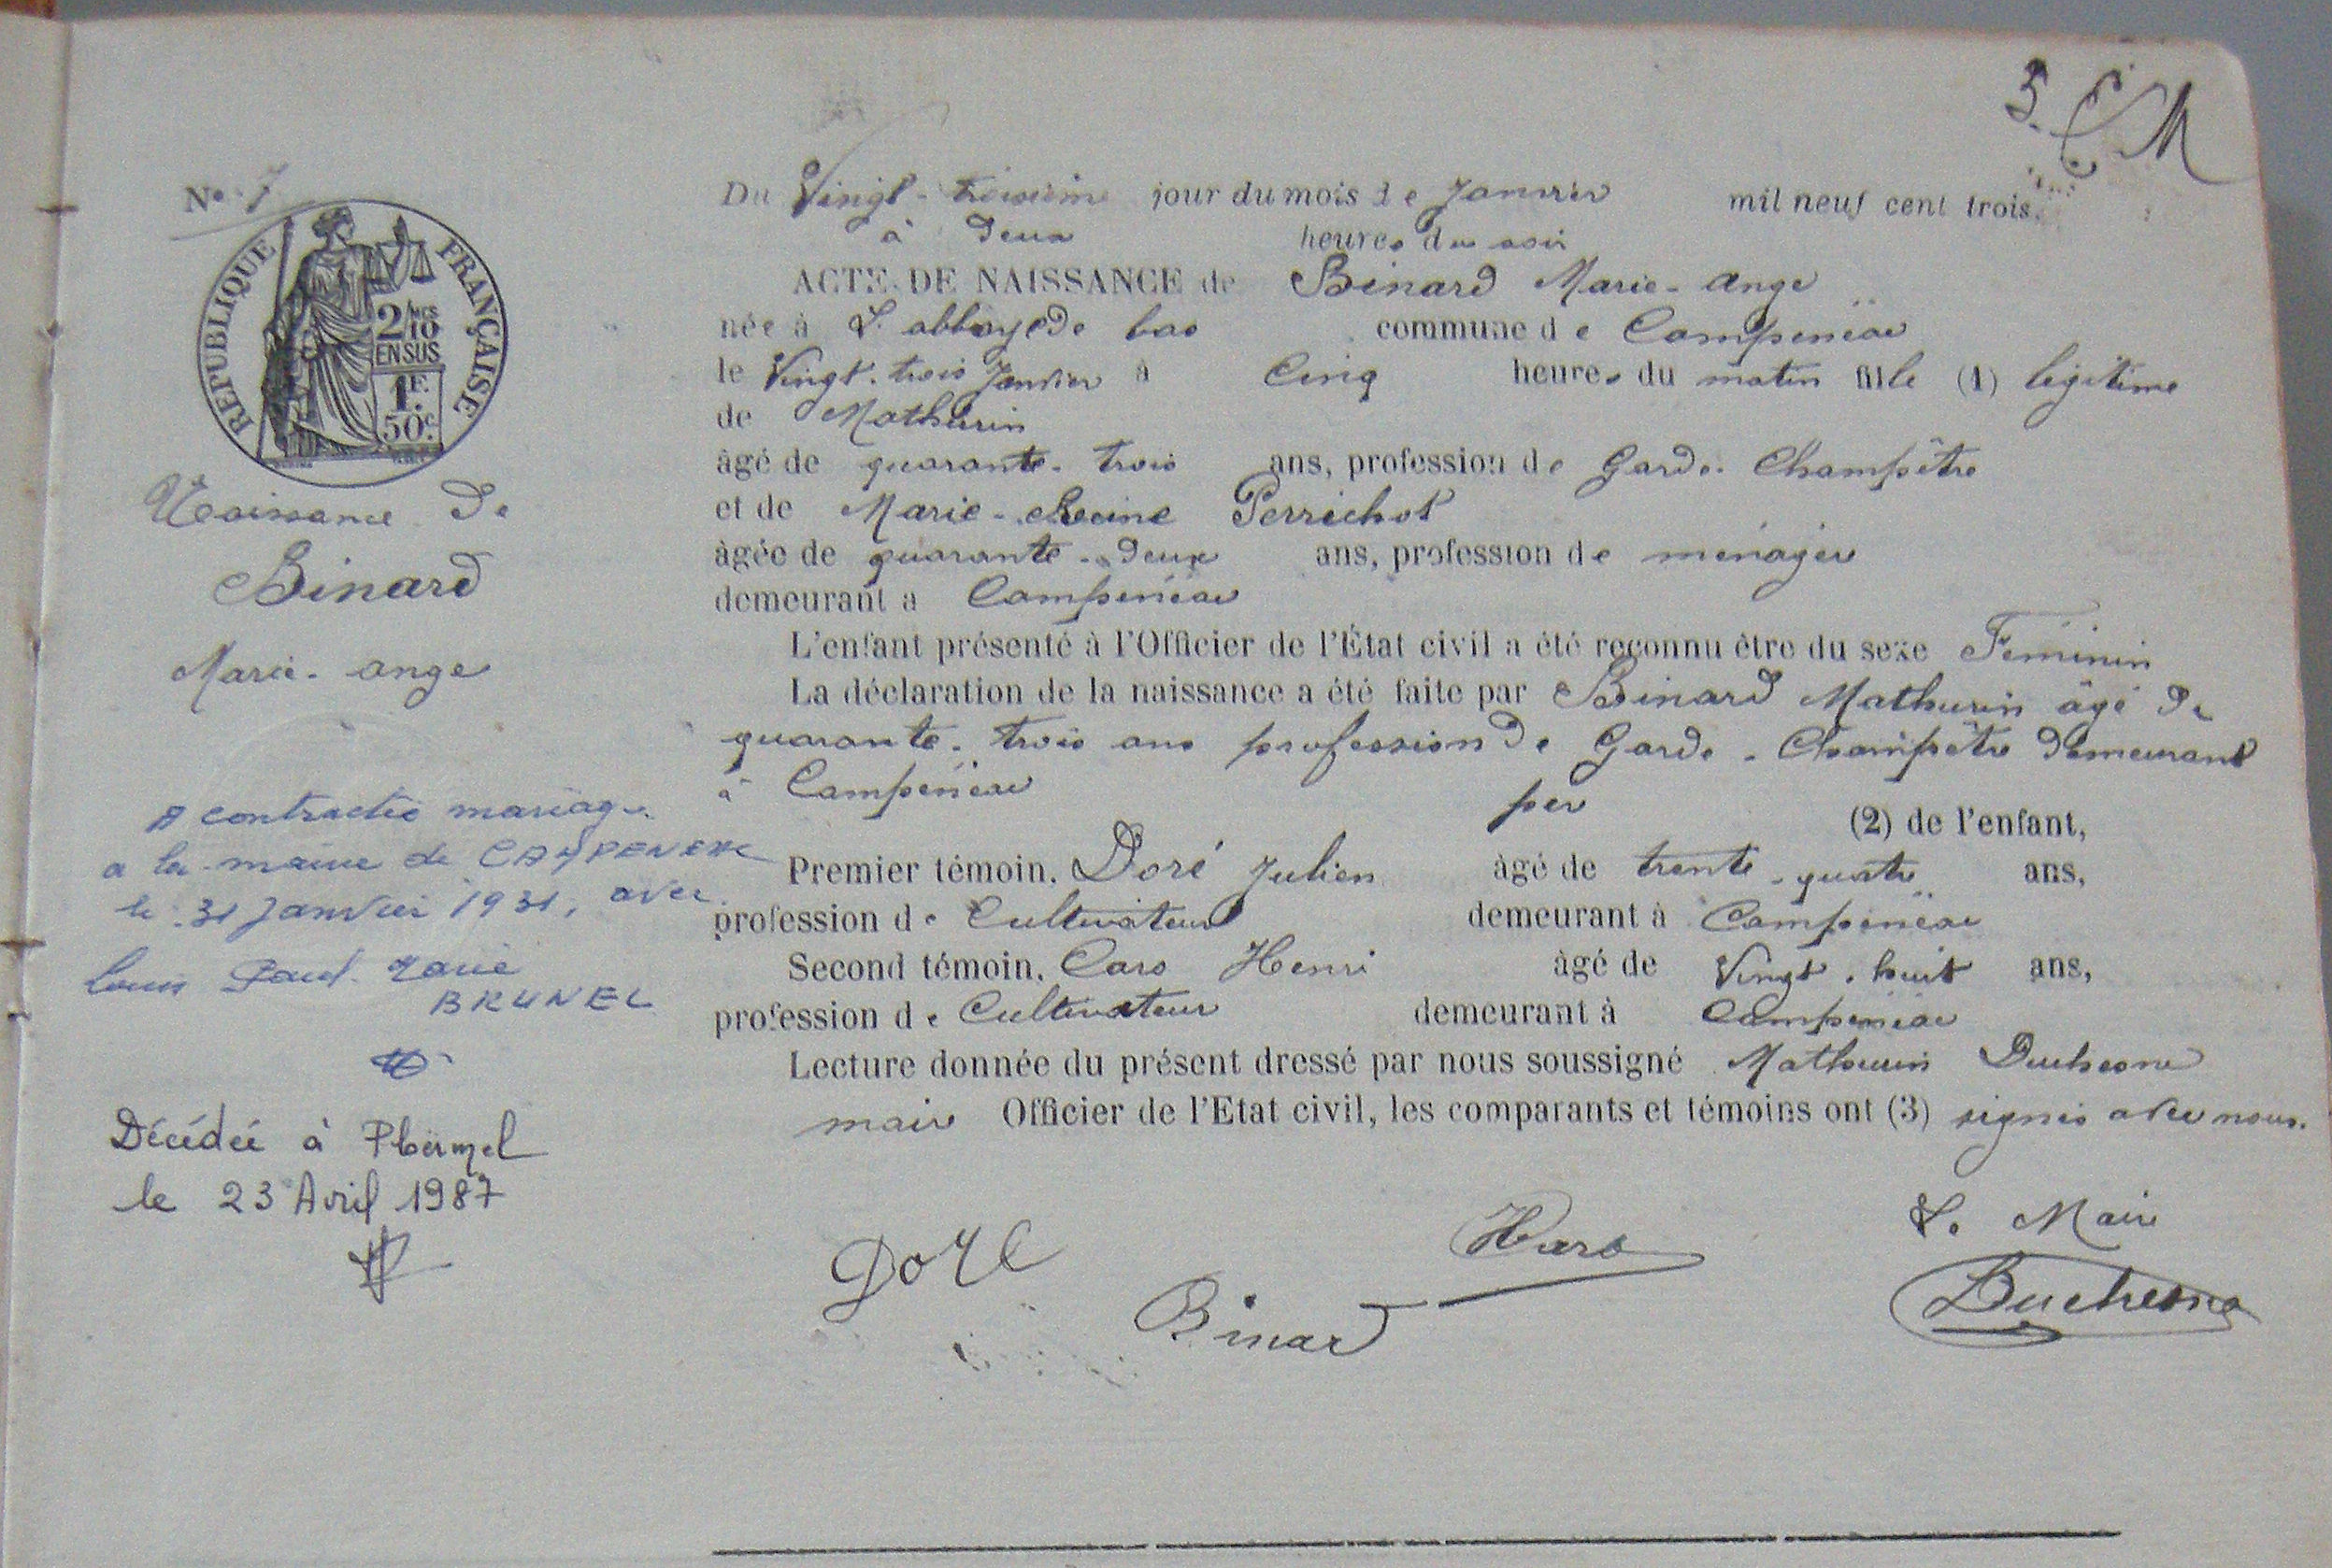 5.
N° 7
RÉPUBLIQUE FRANÇAISE
2/10 MES
EN SUS
1F.
50c.
Naissance de
Binard
Marie-ange
A contracté mariage
a la mairie de CAMPENEAC
le 31 Janvier 1931, avec
Louis Paul Marie
BRUNEL
Décédée à Ploërmel
le 23 Avril 1987
Du Vingt-troisième jour du mois de Janvier mil neuf cent trois.
à deux heures du soir
ACTE DE NAISSANCE de Binard Marie-ange
née à L'abbaye de bas commune de Campénéac
le Vingt-trois Janvier à Cinq heures du matin fille (1) légitime
de Mathurin
âgé de quarante-trois ans, profession de Garde-Champêtre
et de Marie-Reine Perrichot
âgée de quarante-deux ans, profession de ménagère
demeurant à Campénéac
L'enfant présenté à l'Officier de l'État civil a été reconnu être du sexe Féminin
La déclaration de la naissance a été faite par Binard Mathurin âgé de
quarante-trois ans profession de Garde-Champêtre demeurant
à Campénéac père (2) de l'enfant,
Premier témoin, Doré Julien âgé de trente-quatre ans,
profession de Cultivateur demeurant à Campénéac
Second témoin, Caro Henri âgé de Vingt-huit ans,
profession de Cultivateur demeurant à Campénéac
Lecture donnée du présent dressé par nous soussigné Mathurin Duchesne
maire Officier de l'Etat civil, les comparants et témoins ont (3) signés avec nous.
Le Maire
Doré
Binard
Duchesne